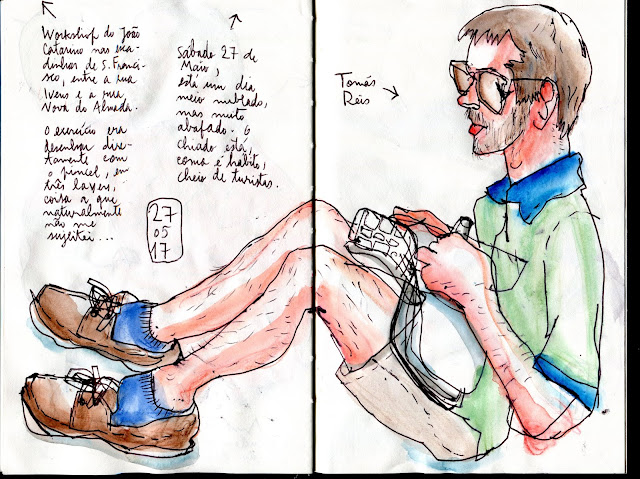 Workshop do João
Catarino nas esca-
dinhas de S. Franci-
sco, entre a rua
Ivens e a rua
Nova do Almada.
O exercício era
desenhar dire-
tamente com
o pincel, em
três layers,
coisa a que
naturalmente
não me
sujeitei...
Sábado 27 de
Maio,
está um dia
meio nublado,
mas muito
abafado. O
chiado está,
como é hábito,
cheio de turistas.
27
05
17
Tomás
Reis